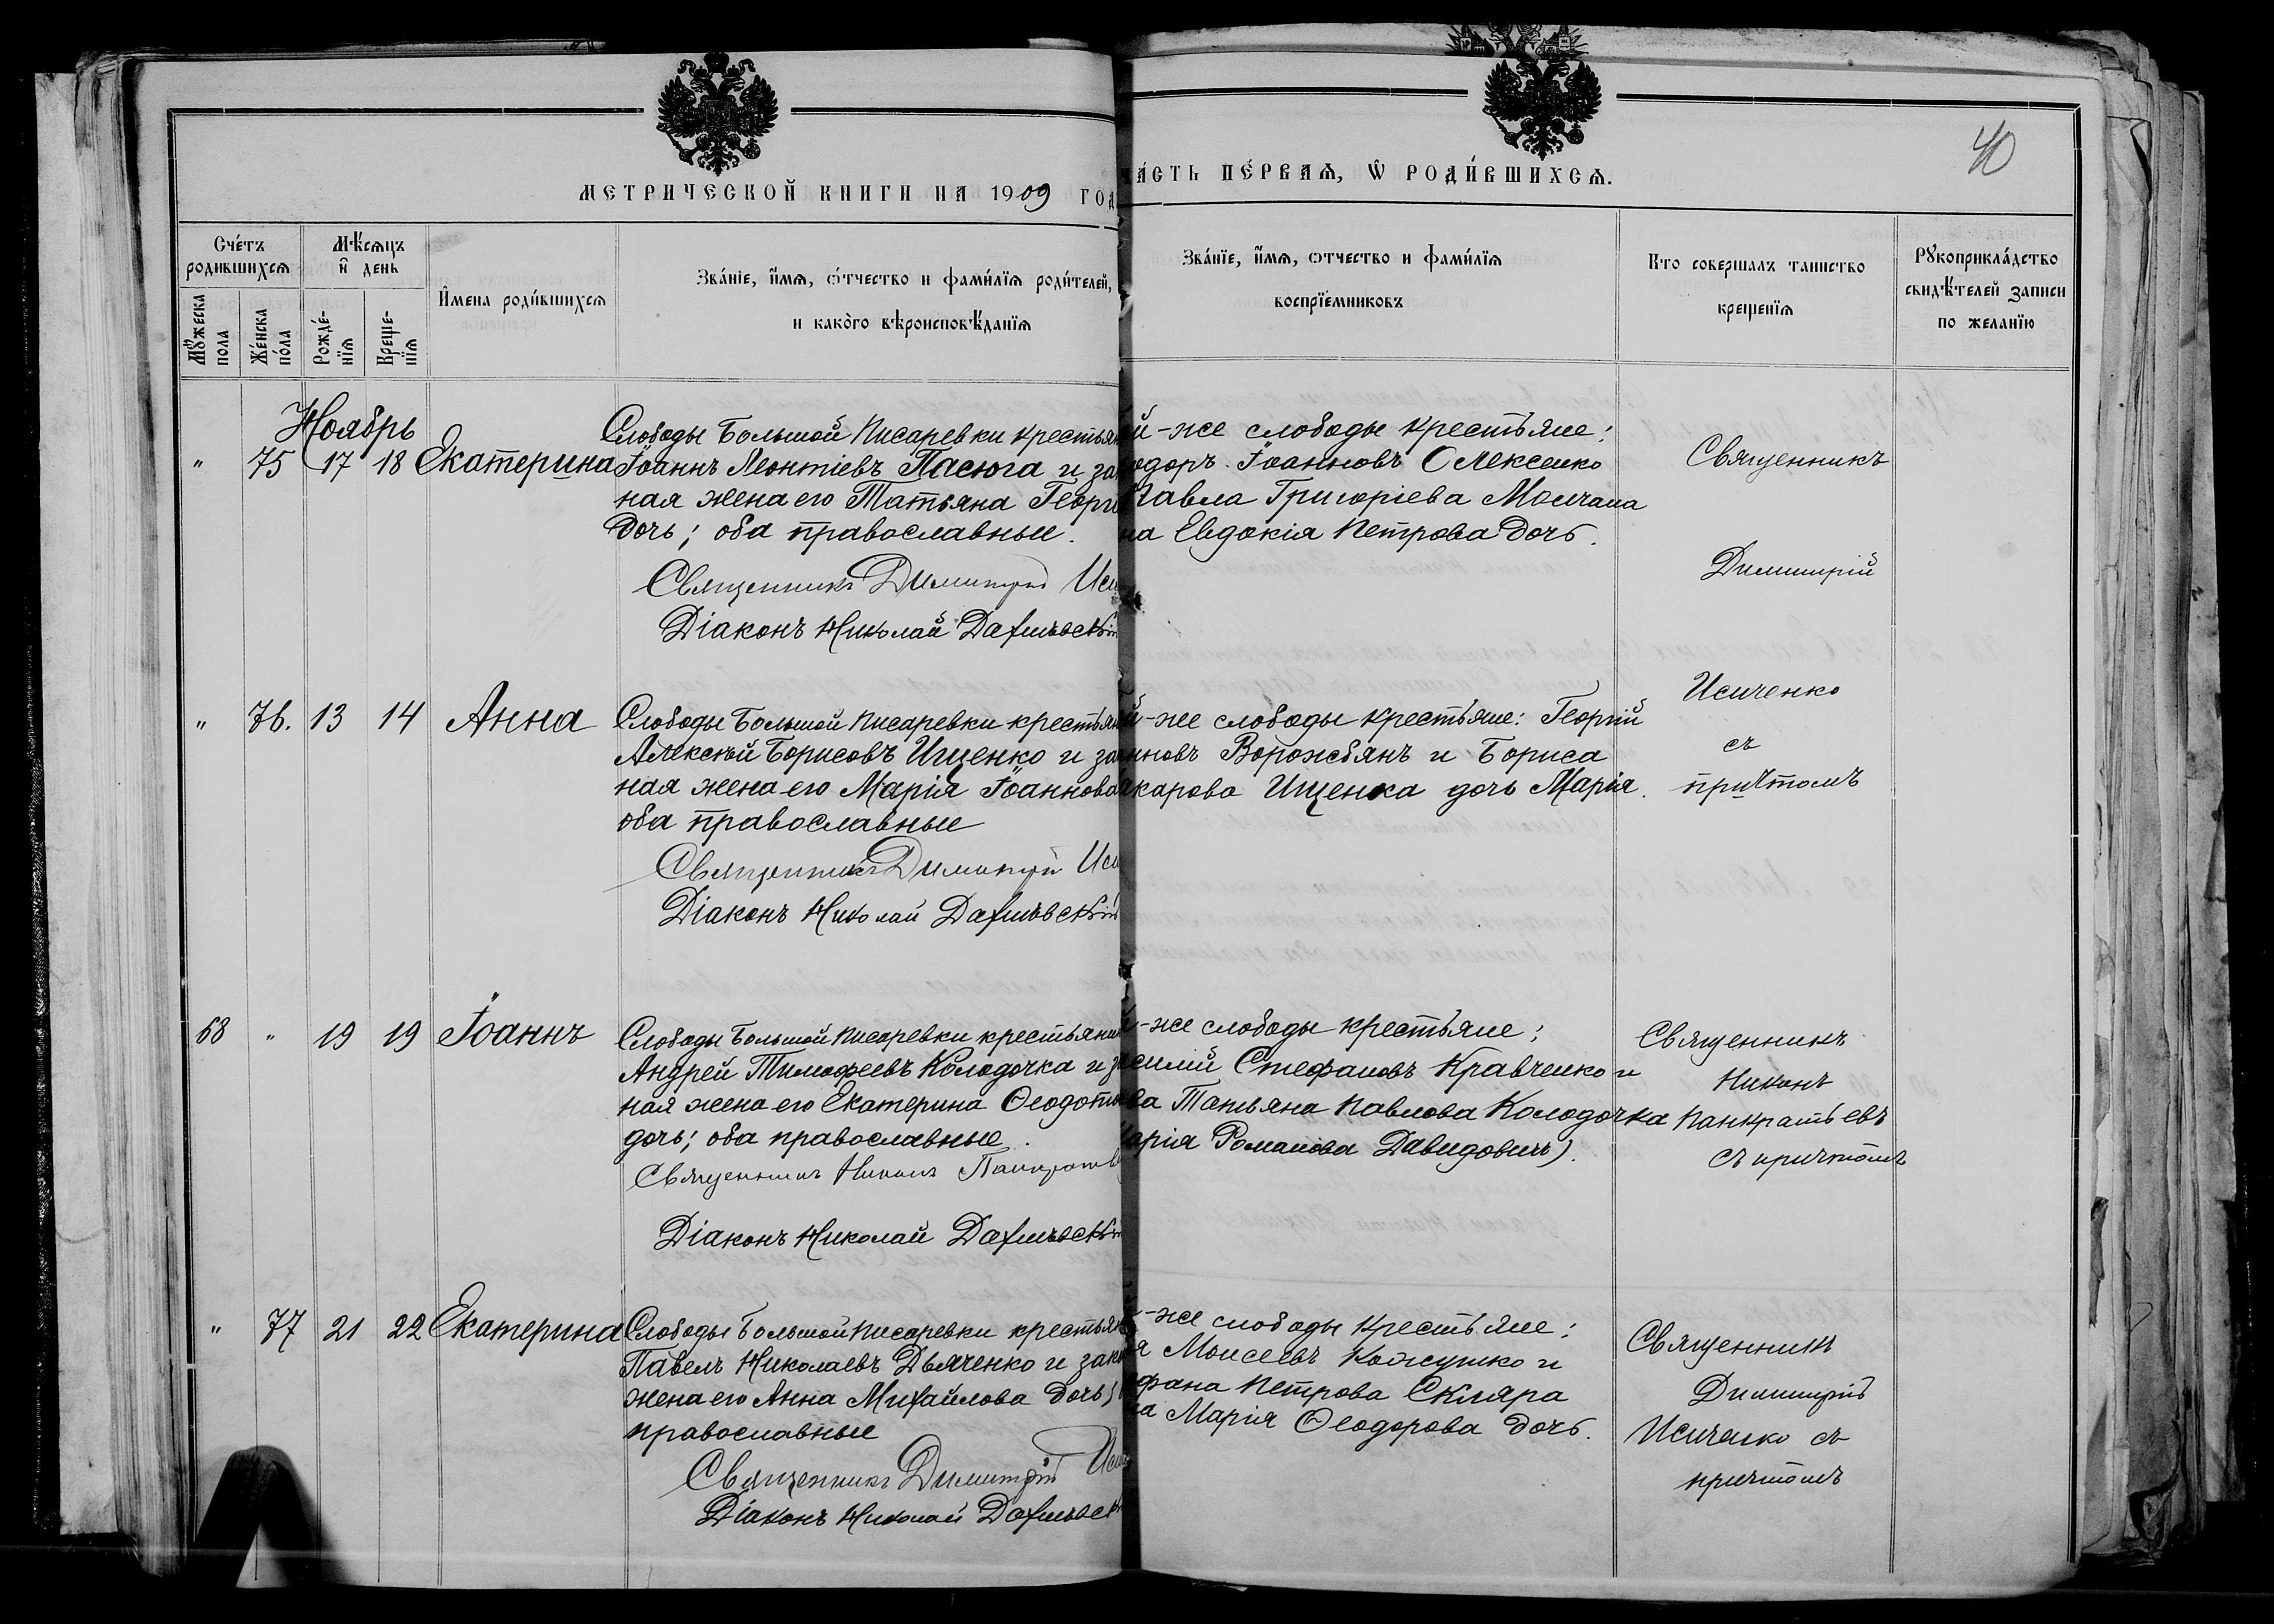 40
МЕТРИЧЕСКОЙ КНИГИ НА 1909 ГОД
ЧА́СТЬ ПЕ́РВАѦ, Ѡ҃ РОДИ́ВШИХСѦ.
Сче́тъ родившихсѧ
Мѣ́сѧцъ и҆ день
И҆мена роди́вшихсѧ
Зва́ніе, и҆́мѧ, ѻ҆́тчество и фами́лїѧ роди́телей,
и како́го вѣроисповѣ́данїѧ
Зва́нїе, и҆́мѧ, ѻтчество и фами́лїѧ
воспрїе́мниковъ
Кто совершалъ таинство
крещенїѧ
Рꙋкоприкла́дство
свидѣ́телей записи
по желанїю
Мꙋжеска пола
Же́нска по́ла
Рожде́-нїѧ
Креще-нїѧ
Ноябрь
" 75 17 18 Екатерина
Слободы Большой Писаревки крестьян
Іоаннъ Леонтіевъ Пасюга и за
ная жена его Татьяна Георг
дочь; оба православные.
Священникъ Димитрій Иси
Діаконъ Николай Дахнѣвскій
й-же слободы крестьяне:
одоръ Іоанновъ Олексенко
Павла Григоріева Молчана
на Евдокія Петрова дочь.
Священникъ
Димитрій
Исиченко
съ
причтомъ
" 76. 13 14 Анна
Слободы Большой Писаревки крестьян
Алексѣй Борисовъ Ищенко и за
ная жена его Марія Іоаннова
оба православные
Священникъ Димитрій Иси
Діаконъ Николай Дахнѣвскій
й-же слободы крестьяне: Георгій
нновъ Ворожбянъ и Бориса
акарова Ищенка дочь Марія.
68 " 19 19 Іоаннъ
Слободы Большой Писаревки крестьянин
Андрей Тимофеевъ Колодочка и з
ная жена его Екатерина Ѳеодот
дочь; оба православные.
Священникъ Никонъ Панкратьев
Діаконъ Николай Дахнѣвскій
й-же слободы крестьяне;
силій Стефановъ Кравченко и
ва Татьяна Павлова Колодочка
арія Романова Давидовичъ).
Священникъ
Никонъ
Панкратьевъ
съ причтомъ
" 77 21 22 Екатерина
Слободы Большой Писаревки крестьян
Павелъ Николаевъ Дьяченко и зако
жена его Анна Михайлова дочь;
православные
Священникъ Димитрій Иси
Діаконъ Николай Дахнѣвск
-же слободы крестьяне:
я Моисеевъ Кожушко и
фана Петрова Скляра
на Марія Ѳеодорова дочь.
Священникъ
Димитрій
Исиченко съ
причтомъ